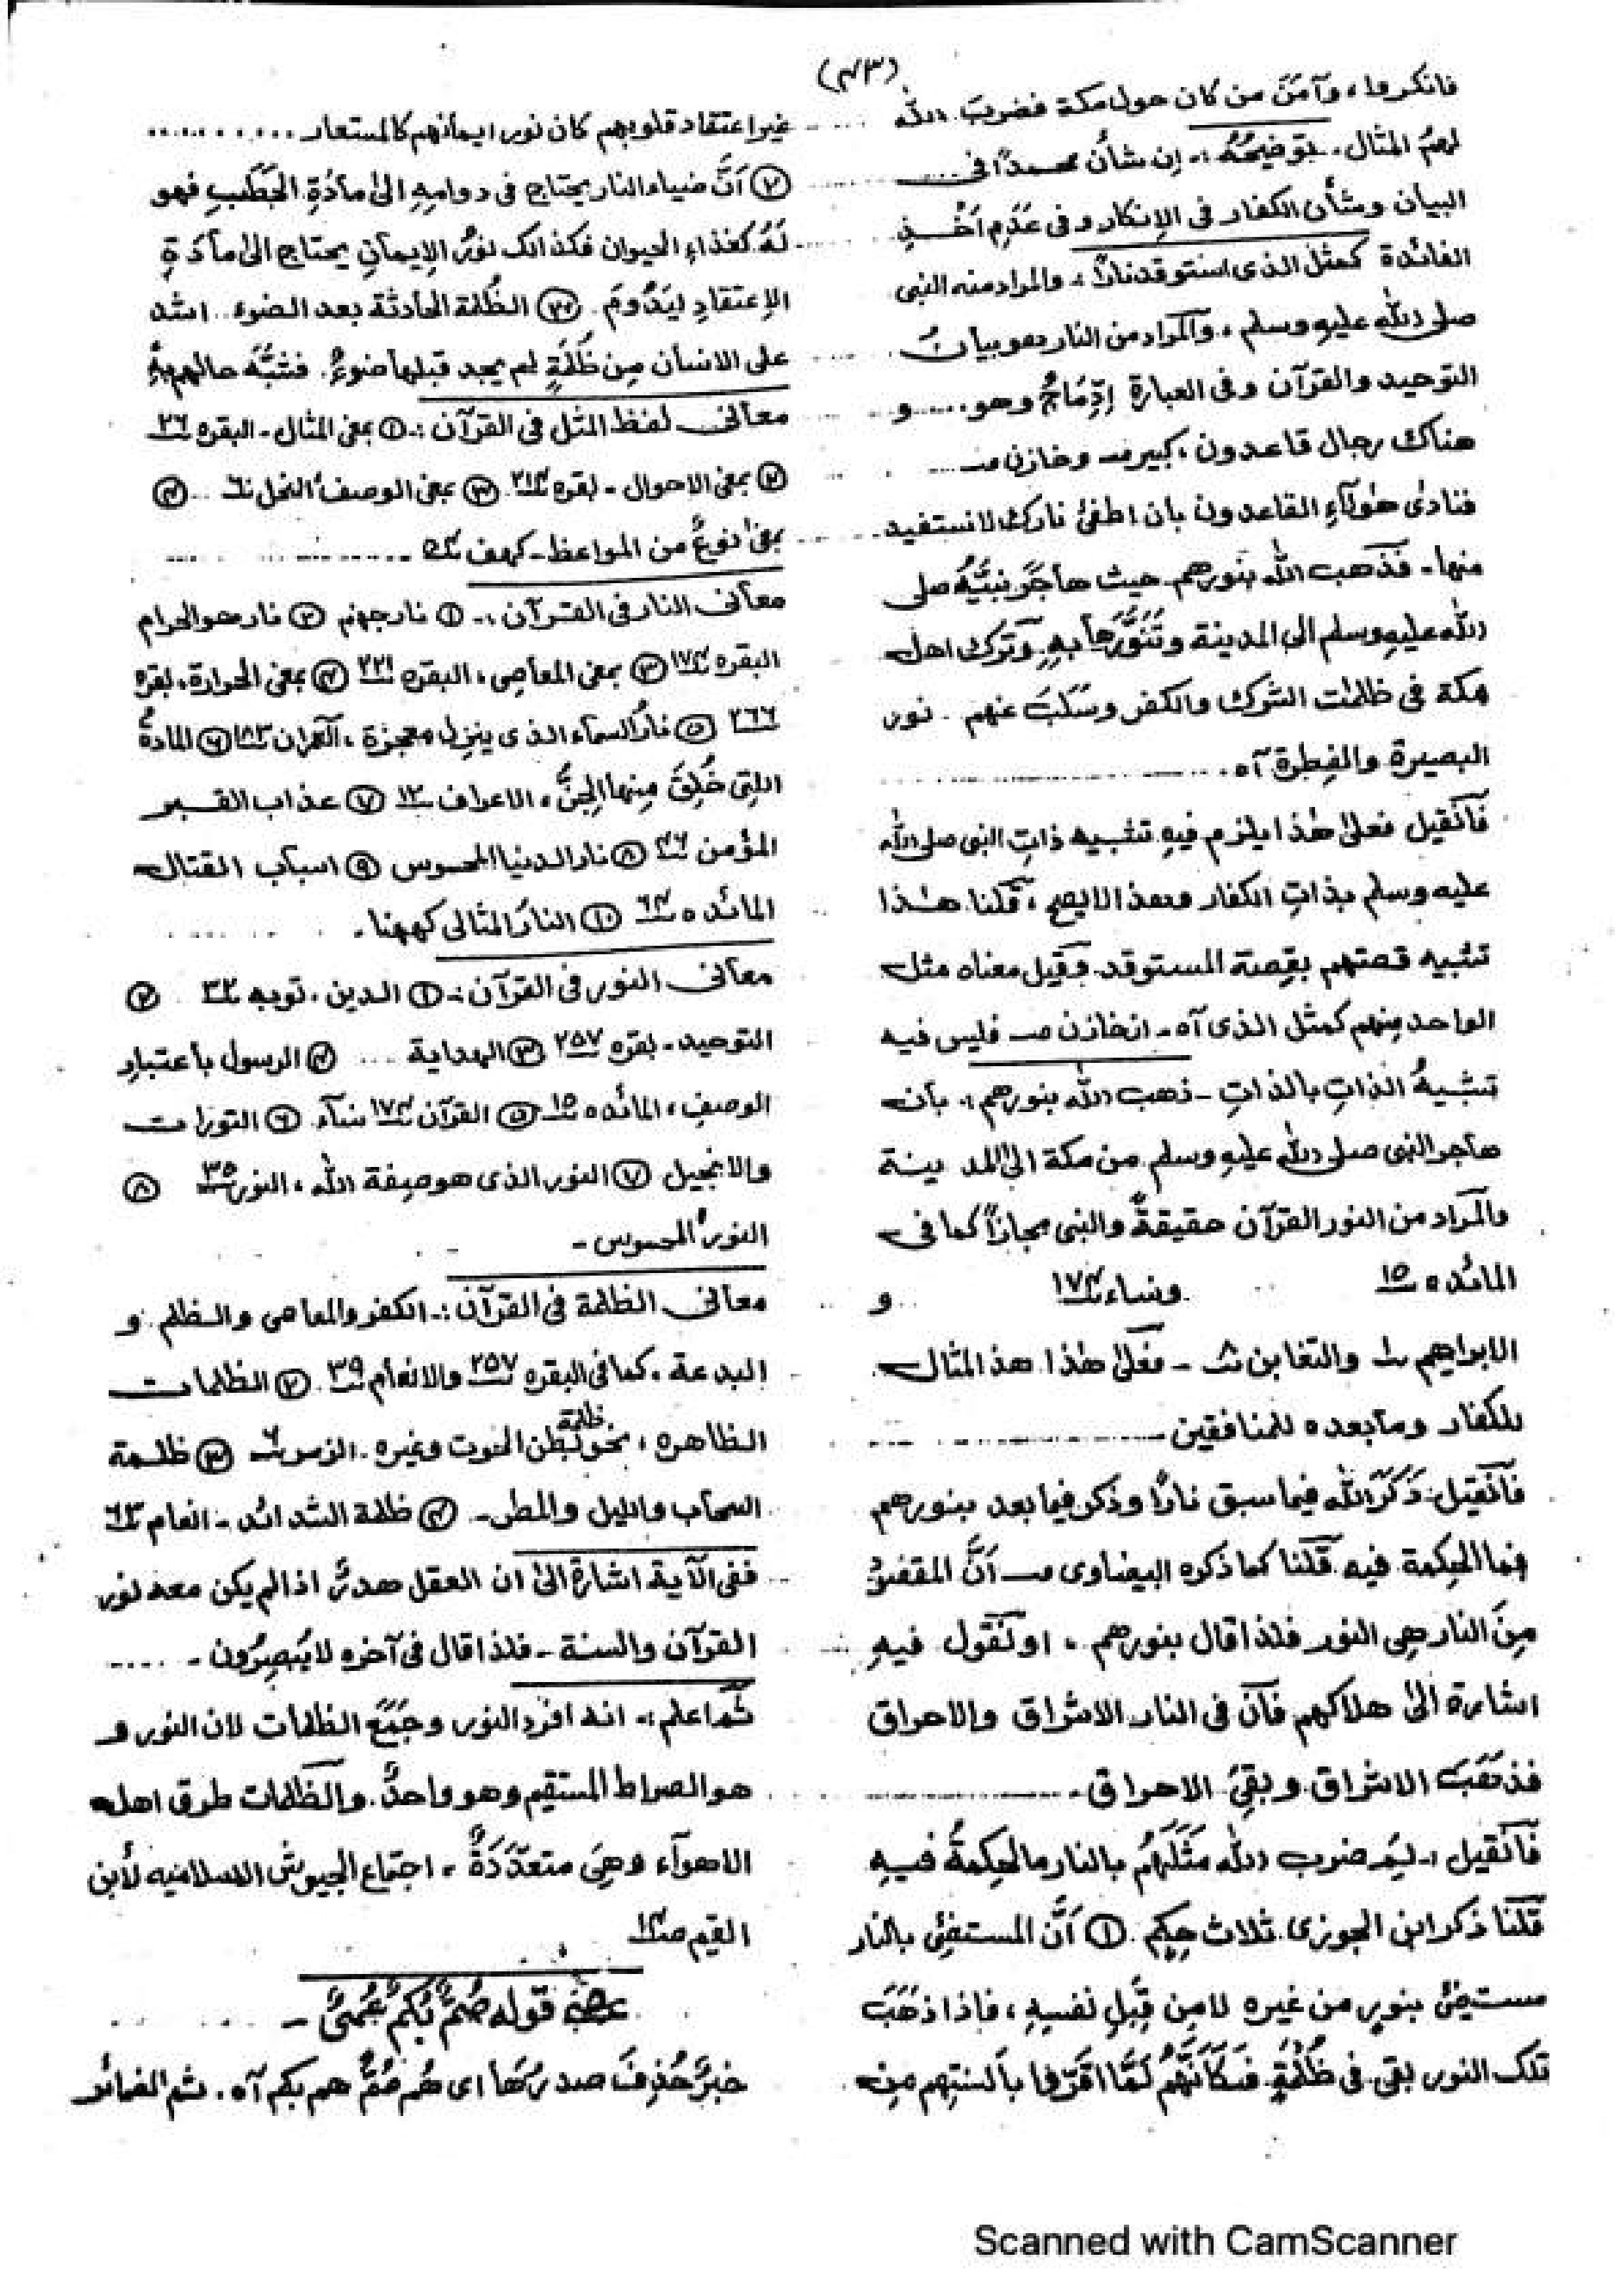 (٤٣)
فانكروا، وآمَنَ من كان حول مكة فضربَ الله
لهمُ المثال. توضيحُهُ :- إن شأن محمدًا فى
البيان وشأن الكفار فى الإنكار وفى عَدَمِ اَخْذِ
الفائدة كمثل الذى استوقد نارًا، والمراد منه النبى
صلى الله عليهِ وسلم، والمراد من النار هو بيان
التوحيد والقرآن وفى العبارة إدِّمَاجٌ وهو..... و
هناك رجال قاعدون، كبير صـ وخازن صـ ....
فنادىٰ هٰولآءِ القاعدون بان اطفئ نارك لا نستفيد
منها۔ فذهب الله بنورهم. حيث هاجَرَ نبيُّهُ صلى
الله عليهِ وسلم الى المدينة وتَنَوَّرَها بهِ وتَرَك اهل
مكة فى ظلمٰت الشرك والكفر وسَلَبَ عنهم. نور
البصيرة والفِطرة آه.
فآن قيل فعلىٰ هٰذا يلزم فيهِ تشبيه ذاتِ النبى صلى الله
عليه وسلم بذاتِ الكفار وهذا لا يصح، قلنا هٰذا
تشبيه قصتهم بقِصة المستوقد. فقيل معناه مثل
الواحد مِنهم كمثل الذى آه۔ ازخازن صـ فليس فيه
تشبيهُ الذاتِ بالذاتِ۔ ذهب الله بنورهم :. بأن
هاجر النبى صلى الله عليهِ وسلم من مكة الى المدينة
والمراد من النور القرآن حقيقةً والنبى مجازاً كما فى
المائده ١٥ ونساء ١٧٤ و
الابراهيم ١ والتغابن ٨ ۔ فعلىٰ هٰذا هذ المثال
للكفار وما بعده للمنافقين
فآن قيل: ذَكَرَ الله فيما سبق نارًا وذكر فيما بعد بنورهم
فما الحِكمة فيه قلنا كما ذكره البيضاوى صـ اَنَّ المقصود
مِنَ النار هى النور فلذا قال بنورهم، او نَقُول فيهِ
اشارة الىٰ هلاكهم فآن فى النار الاشراق والاحراق
فذهَبَ الاشراق وبقِىَ الاحراق.
فآن قيل :. لِمَ ضرب الله مَثَلَهُم بالنار ما الحِكمةُ فيهِ
قلنا ذكر ابن الجوزى ثلاث حِكمٍ. ① اَنَّ المستضِئ بالنار
مستضِئ بنورٍ من غيره لا مِن قِبَلِ نفسِهِ، فاذا ذهَبَ
تلك النور بقى فى ظُلْمَةٍ فكَاَنَّهُم لَمَّا اقرّوا بألسنتهم مِن
غير اعتقاد قلوبهم كان نور ايمانهم كالمستعار
② اَنَّ ضياء النار يحتاج فى دوامِهِ الىٰ مادّةِ الحَطَبِ فهو
لَهُ كغذاءِ الحيوان فكذالك نورُ الإيمانِ يحتاج الىٰ مآدَةِ
الإعتقادِ ليَدُومَ. ③ الظُلمة الحادثة بعد الضوء. اشد
على الانسان مِن ظُلْمَةٍ لم يجد قبلها ضوءً. فشبَّه حالهم بهِ
معانى لفظ المثل فى القرآن :. ① بمعنى المثال۔ البقره ٢٦
② بمعنى الاحوال۔ بقره ٢١٤ ③ بمعنى الوصف النحل ٦٠ ④
بمعنىٰ نوعٌ من المواعظ۔ كهف
معانى النار فى القرآن :. ① نار جهنم ② نار هو الحرام
البقره ١٧٤ ③ بمعنى المعاصِى، البقره ٢٢١ ④ بمعنى الحرارة، بقره
٢٦٦ ⑤ نارُ السماء الذى ينزل معجزة، آلعمران ١٨٣ ⑥ المادةُ
اللتى خُلِقَ مِنها الجِنُّ، الاعراف ١٢ ⑦ عذاب القبر
المؤمن ٤٦ ⑧ نار الدنيا المحسوس ⑨ اسباب القتال
المائده ٦٤ ⑩ النارُ المثالى كههنا۔
معانى النور فى القرآن :. ① الدين، توبه ٣٢ ②
التوحيد۔ بقره ٢٥٧ ③ الهداية ④ الرسول بأعتبارِ
الوصفِ، المائده ١٥ ⑤ القرآن ١٧٤ نسآء ⑥ التورات
والانجيل ⑦ النور الذى هو صِفة الله، النور ٣٥ ⑧
النورُ المحسوس۔
معانى الظلمة فى القرآن :. الكفر والمعاصى والظلم و
البدعة، كما فى البقره ٢٥٧ والانعام ٣٩ ② الظلمات
الظاهره، نحو ظلمة بطن الحوت وغيره. الزمر ٦ ③ ظلمة
السحاب والليل والمطر۔ ④ ظلمة الشدائد۔ انعام ٦٣
ففى الآية اشارة الىٰ ان العقل هدرٌ اذا لم يكن معه نور
القرآن والسنة۔ فلذا قال فى آخره لا يُبصِرُون۔
ثُمَّ اعلم :. انه افرد النور وجَمَعَ الظلمات لان النور
هو الصراط المستقيم وهو واحدٌ. والظلمات طرق اهل
الاهوآء وهِىَ متعدّدَةٌ، اجتماع الجيوش الاسلاميه لأبن
القيم صـ
قوله صُمٌّ بُكمٌ عُمىٌ۔
خبرٌ حُذِفَ صدرُها اى هُم صُمٌّ هم بكم آه. ثم الضمائر
Scanned with CamScanner